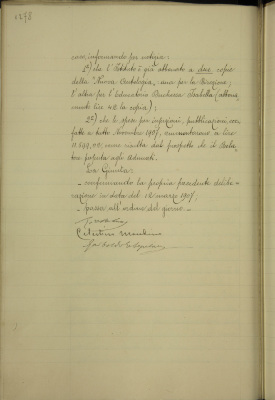 1298
caso, informando per notizia:
1°) che l'Istituto è già abbonato a due copie
della "Nuova Antologia, una per la Direzione,
l'altra per l'Educatorio Duchessa Isabella (abbona
mento lire 42 la copia);
2°) che le spese per iscrizioni, pubblicazioni, ecc.
fatte a tutto Novembre 1907, ammontano a lire
come risulta dal prospetto che il Rela
tore presenta agli adunati.
La Giunta:
- confermando la propria precedente delibe-
razione in data del 12 marzo 1907;
- passa all'ordine del giorno -